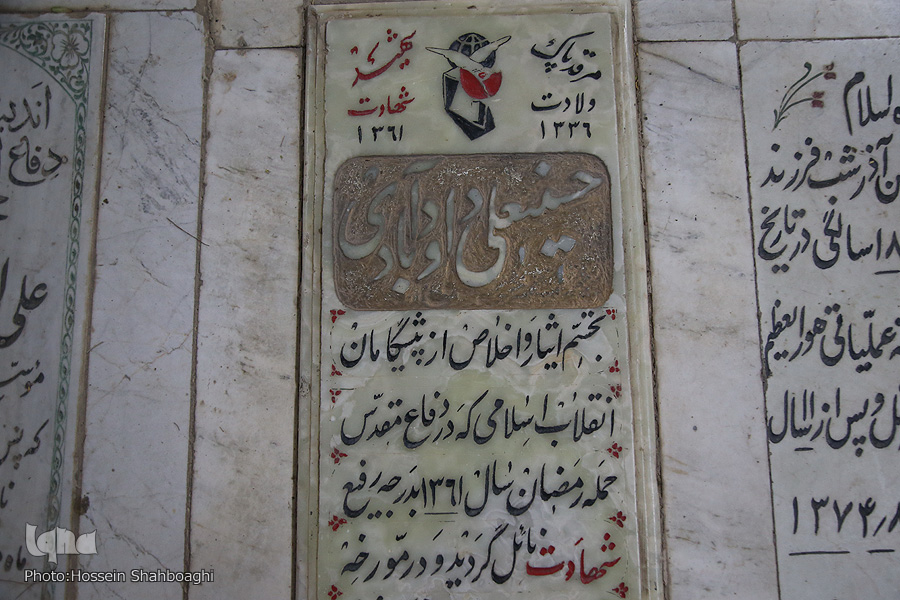 مرقد پاک شهید
ولادت شهادت
۱۳۳۶ ۱۳۶۱
حسینعلی داودآبادی
تجسّم ایثار و اخلاص از پیشگامان
انقلاب اسلامی که در دفاع مقدّس
حمله رمضان سال ۱۳۶۱ بدرجه رفیع
شهادت نائل گردید و در مورخه
اسلام
آذر شب فرزند
سالگی در تاریخ
عملیاتی هورالعظیم
و پس از ۱۱ سال
۱۳۷۴
دفاع
علی
که پس
iqna
Photo:Hossein Shahboaghi